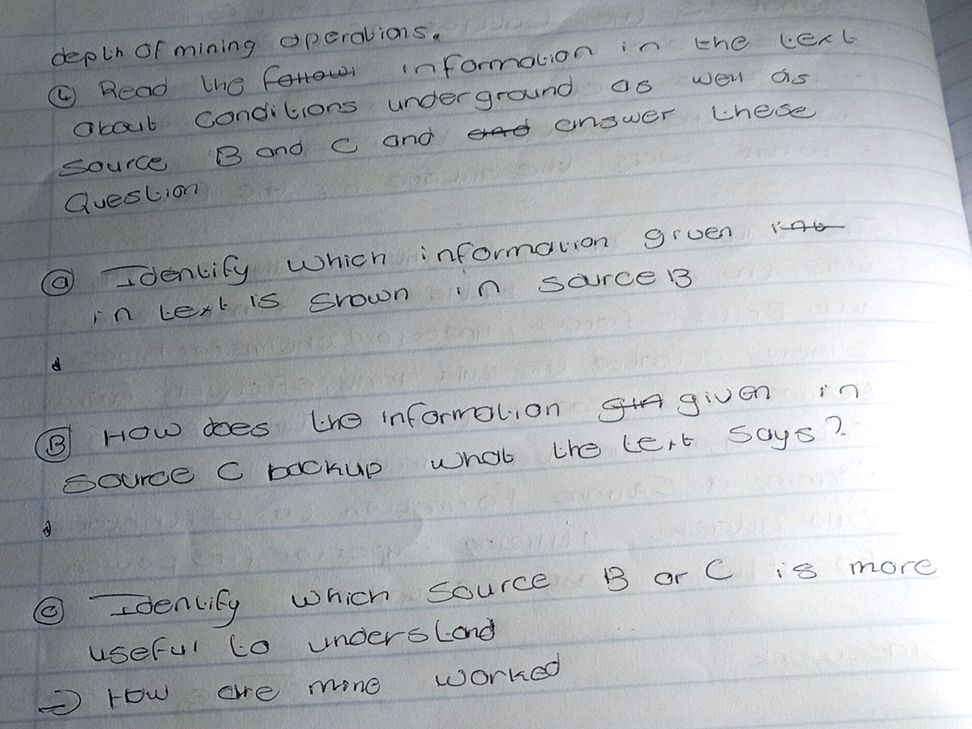 depth of mining operations.
④ Read the follow information in the text
about conditions underground as well as
source B and C and and answer these
Question
ⓐ Identify which information given int
in text is shown in source B
Ⓑ How does the information gin given in
source C backup what the text says?
ⓒ Identify which source B or C is more
useful to understand
⇒ How are mine worked